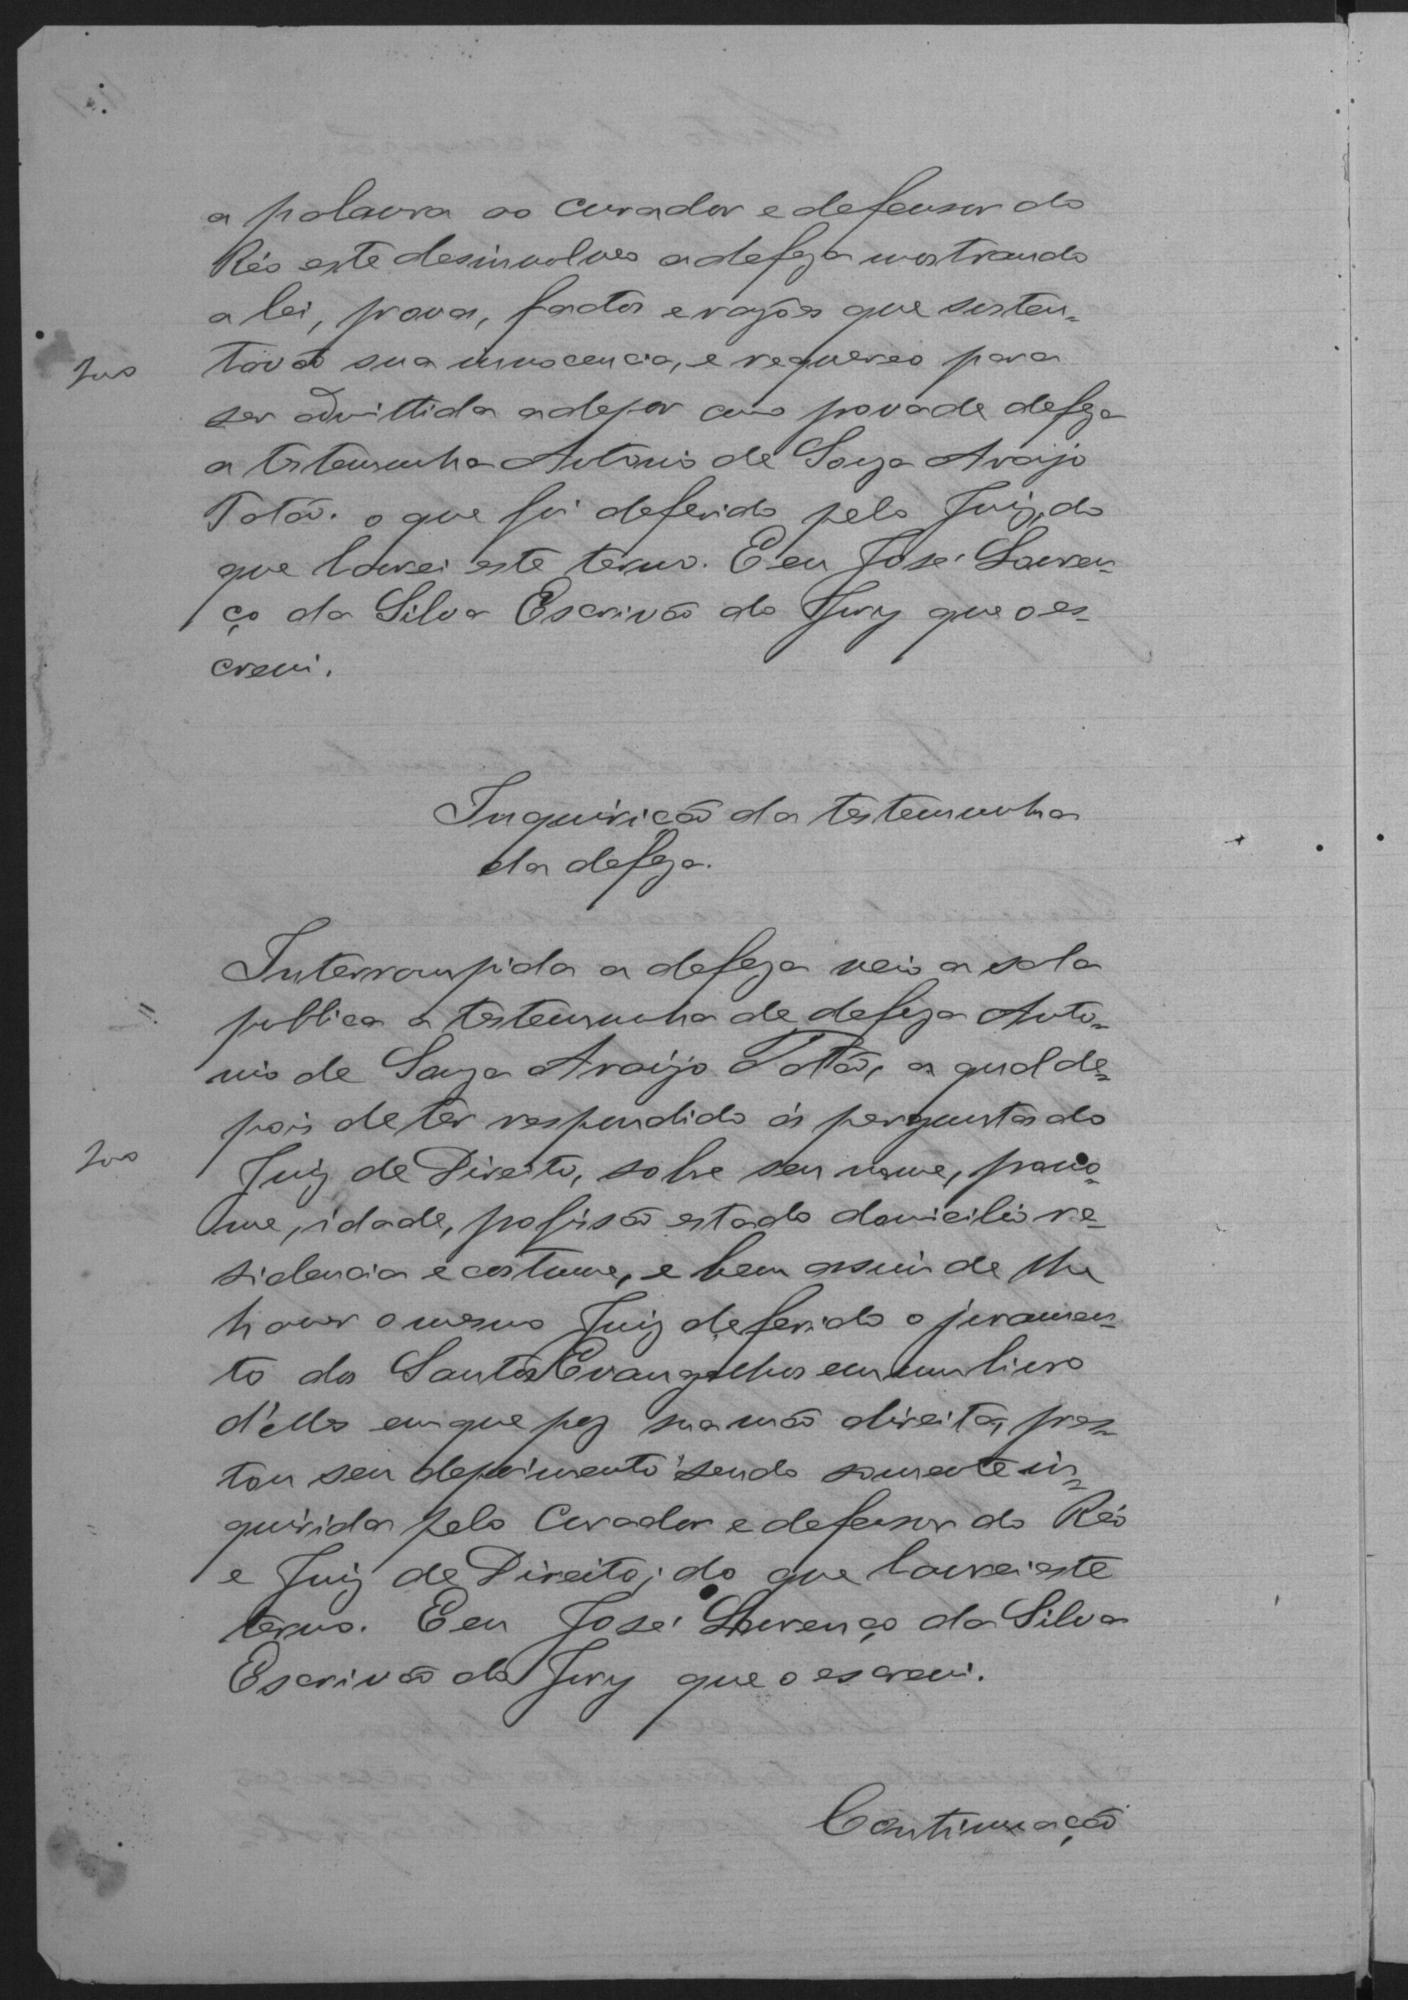 a palavra ao Curador e defensor do
Réo este desinvolveo a defeza mostrando
a lei, provas, factos e razões que susten-
tavão sua innocencia, e requereo para
ser admittida a depor como prova de defeza
a testemunha Antonio de Souza Araujo
Totão. o que foi deferido pelo Juiz, do
que lavrei este termo. E eu José Louren-
ço da Silva Escrivão do Jury que o es-
crevi.
Inquirição da testemunha
da defeza.
Interrompida a defeza veio a sala
publica a testemunha de defeza Anto-
nio de Souza Araujo Totão, a qual de-
pois de ter respondido ás perguntas do
Juiz de Direito, sobre seu nome, prono-
me, idade, profissão estado domicilio re-
sidencia e costume, e bem assim de lhe
haver o mesmo Juiz deferido o juramen-
to dos Santos Evangelhos em um livro
d'elles em que poz sua mão direita, pres-
tou seu depoimento sendo somente in-
quirida pelo Curador e defensor do Réo
e Juiz de Direito; do que lavrei este
termo. E eu José Lourenço da Silva
Escrivão do Jury que o escrevi.
Continuação